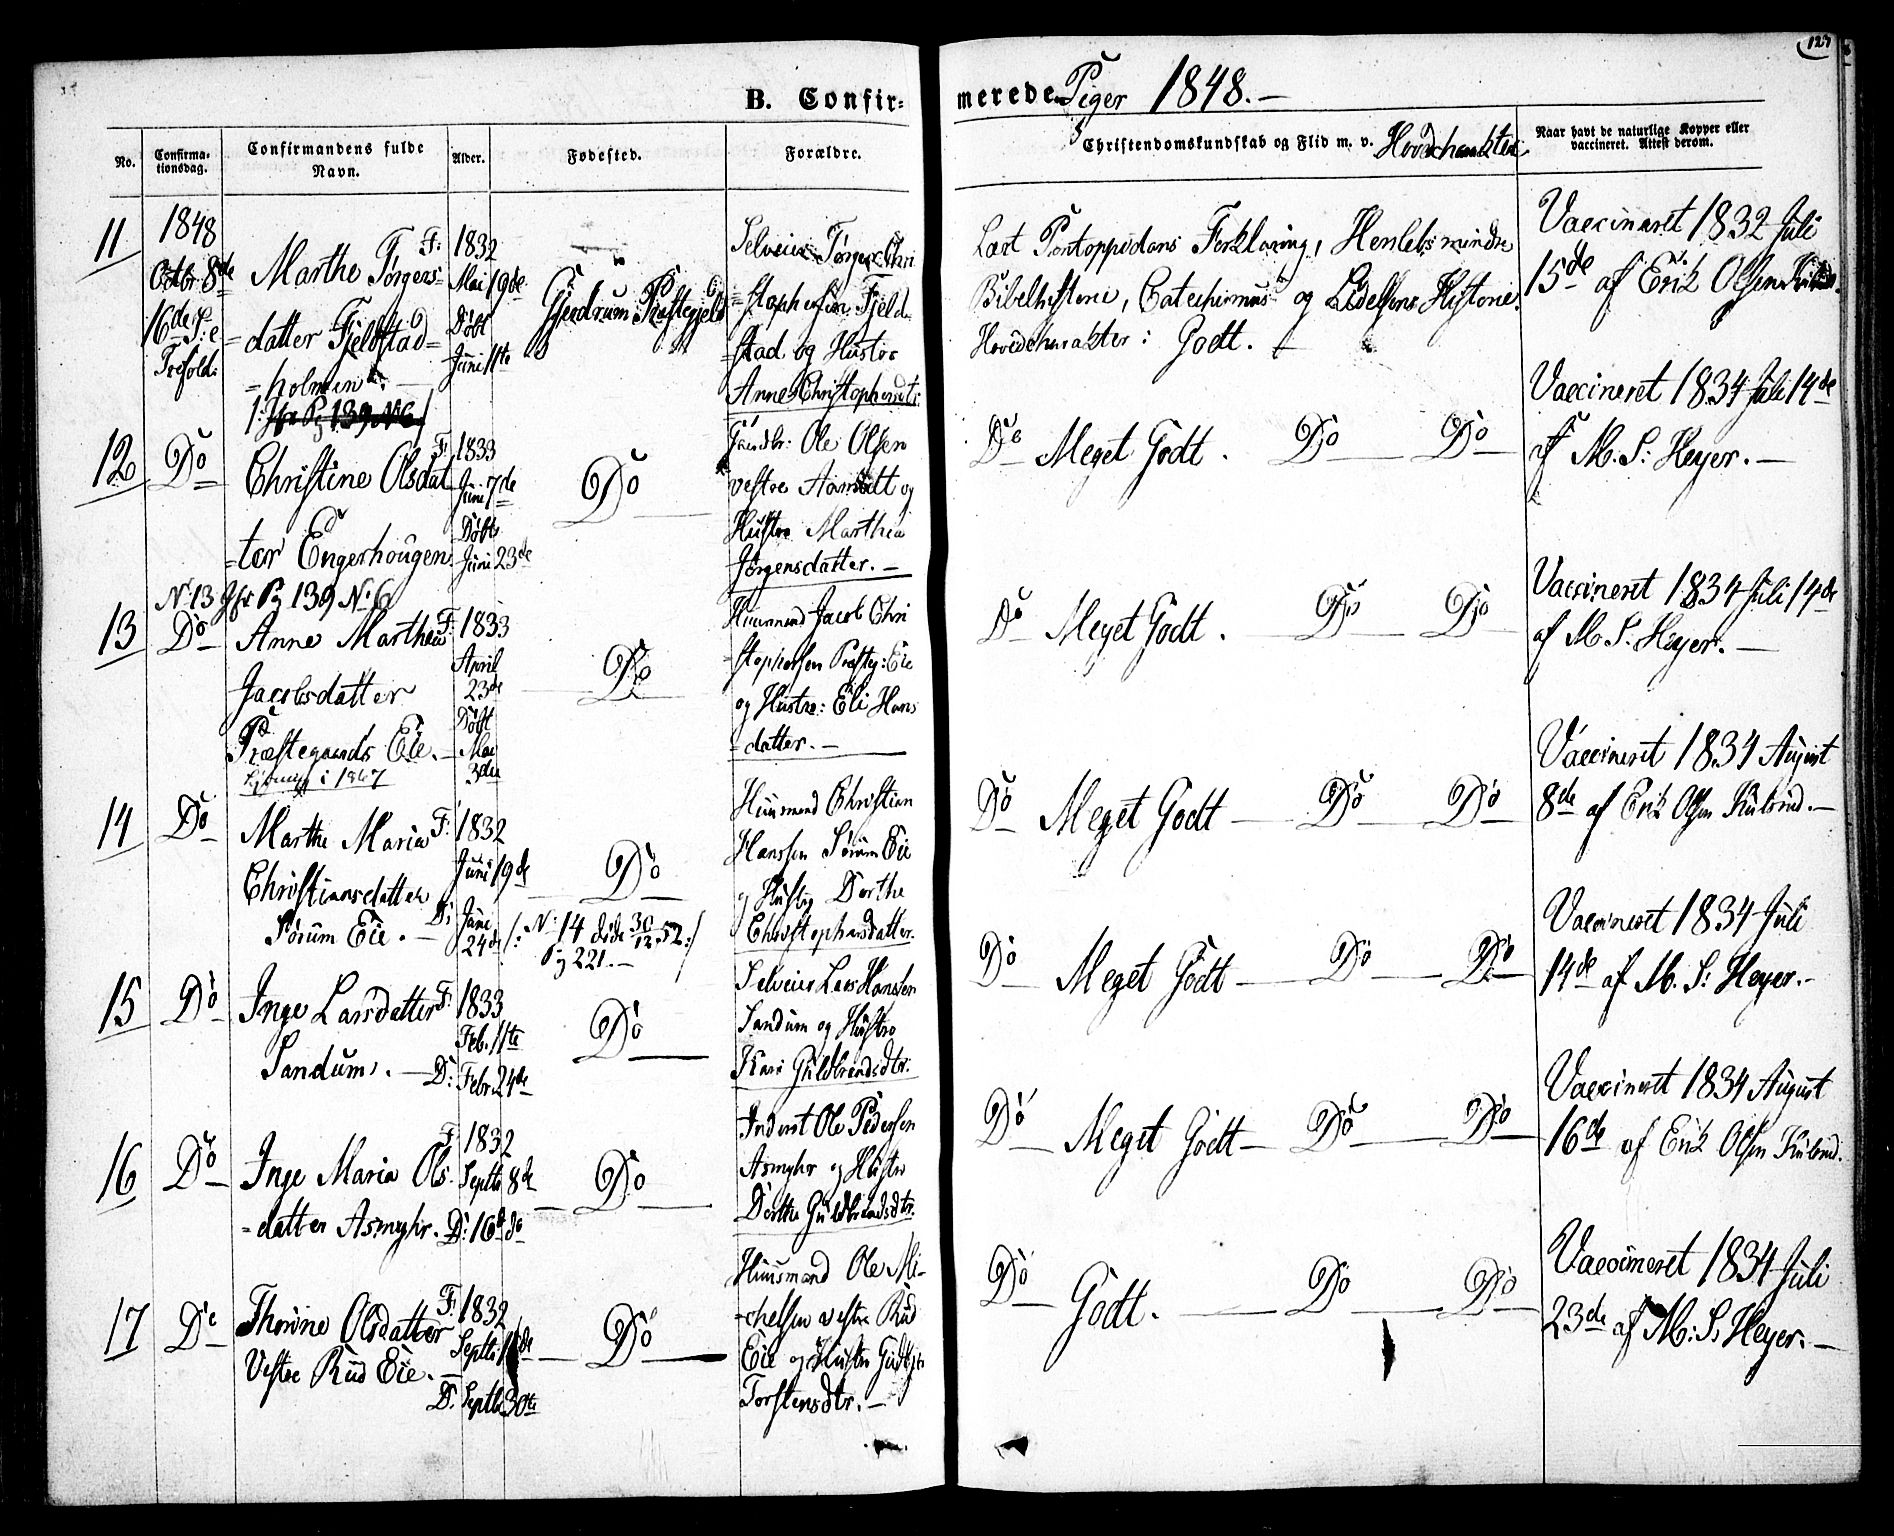 123
B. Confir-
merede Piger 1848.-
No.
Confirma-
tionsdag.
Confirmandens fulde
Navn.
Alder.
Fødested.
Forældre.
Christendomskundskab og Flid m. v. Hovedcharakter
Naar havt de naturlige Kopper eller
vaccineret. Attest derom.
11
1848
Octbr 8de
16de S: e
Trefold:
Marthe Tørgers=
=datter Fjeldstad=
=holmen. -
F: 1832
Mai 19de
Døbt
Juni 11te
Gjerdrum Præstegjeld
Selveier Tørger Chri
=stophersen Fjeld
=stad og Hustro
Anne Christophersdtr.
Læst Pontoppidans Forklaring, Henlets mindre
Bibelhistorie, Catechismus og Lidelsens Historie.
Hovedcharakter: Godt. -
Vaccineret 1832 Juli
15de af Erik Olsen
12
Do
Christine Olsdat
=ter Engerhougen
F: 1833
Juni 7de
Døbt
Juni 23de
Do
Ole Olsen
vestre og
Hustro Marthea
Jørgensdatter. -
Do Meget Godt. Do Do
Vaccineret 1834 Juli 14de
af M. S: Heyer. -
N: 13 Jfr Pg 139 N: 6
13
Do
Anne Marthea
Jacobsdatter
Præstegaards Eie. -
i 1867
F: 1833
April
23de
Døbt
Mai
3die
Do
Huusmand Jacob Chri
=stophersen Præsteg: Eie
og Hustro: Eli Hans
=datter. -
Do Meget Godt. - Do - Do -
Vaccineret 1834 Juli 14de
af M. S. Heyer. -
14
Do
Marthe Maria
Christiansdatter
Sørum Eie. -
F: 1832
Juni 19de
D: Juni
24de
Do
/: N: 14 døde 30/12 52 :/
Pg 221. -
Huusmand Christian
Hanssen Sørum Eie
og Hustro Dorthe
Christophersdatter.
Do Meget Godt - Do - Do -
Vaccineret 1834 August
8de af Erik Olsen Kulsrud. -
15
Do
Inge Larsdatter
Sandum. -
F: 1833
Feb. 11te
D: Febr 24de
Do
Selveier Lars Hansen
Sandum og Hustro
Kari Guldbrandsdtr.
Do Meget Godt - Do - Do -
Vaccineret 1834 Juli
14de af M. S: Heyer. -
16
Do
Inge Maria Ols
=datter Asmyhr.
F: 1832
Septbr 8de
D: 16de do
Do
Inderst Ole Pedersen
Asmyhr og Hustro
Dorthe Guldbrandsdtr.
Do Meget Godt - Do - Do
Vaccineret 1834 August
16de af Erik Olsen Kulsrud.
17
Do
Thorine Olsdatter
Vestre Rud Eie. -
F: 1832
Septbr
D: Septbr 30te
Do
Huusmand Ole Mi-
-chelsen vestre Rud
Eie og Hustro
Torstensdtr. -
Do Godt. - Do - Do
Vaccineret 1834 Juli
23de af M: S: Heyer. -